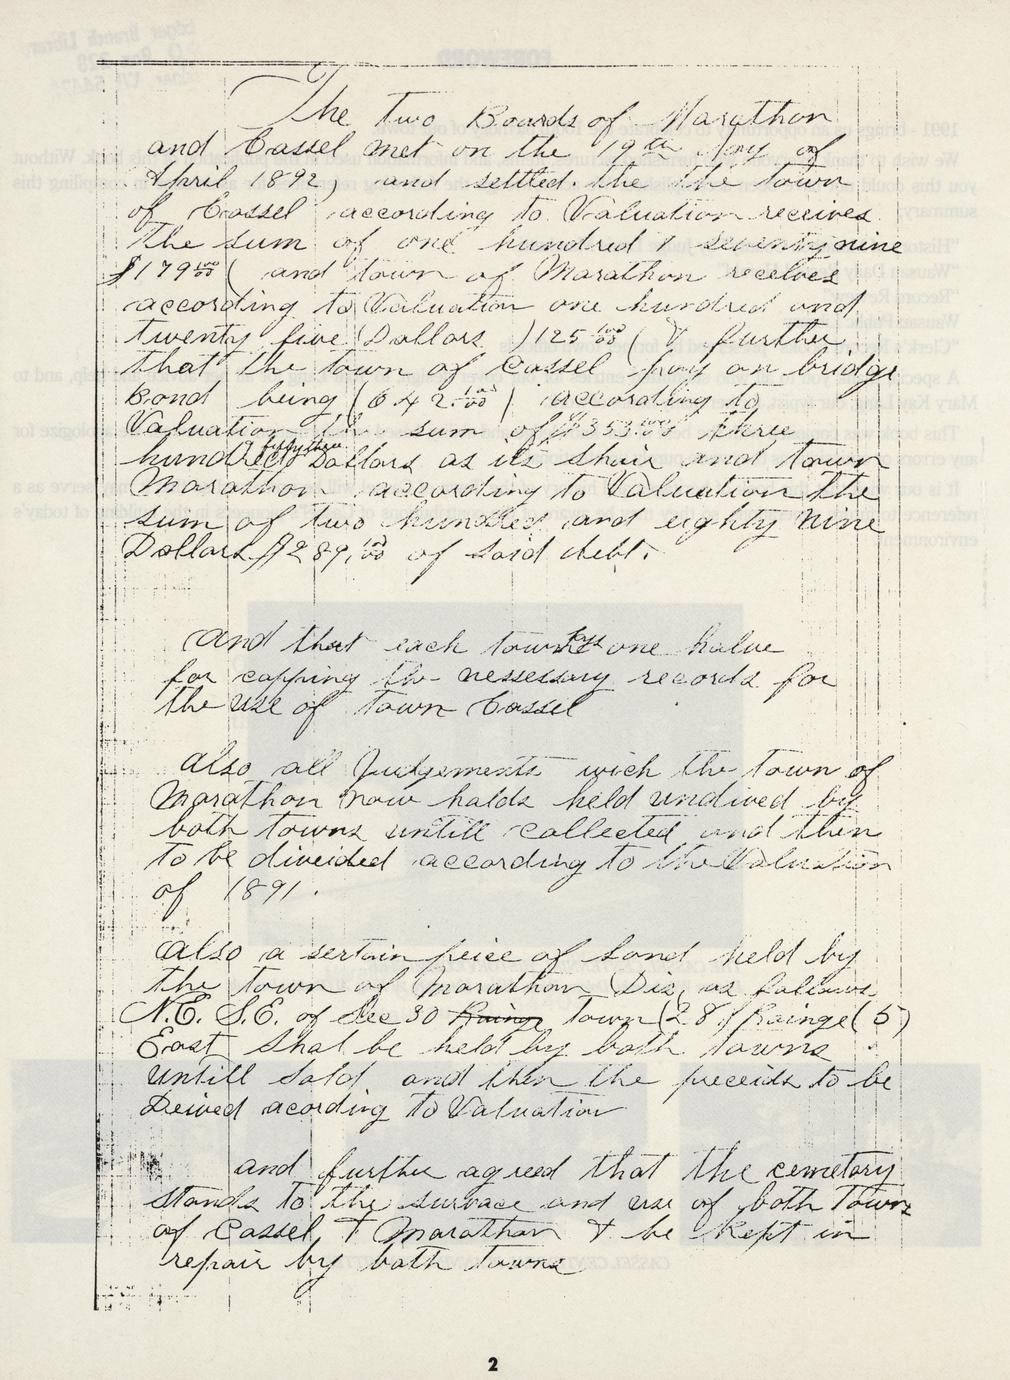 The two Boards of Marathon
and Cassel met on the 19th Day of
April 1892, and settled. the the town
of Cassel according to Valuation receives
the sum of one hundred & seventy nine
$179 100/00 ( and town of Marathon receives
according to Valuation one hundred and
twenty five (Dollars ) 125 100/00 ( & further
that the town of Cassel pay on bridge
Bond being ( 642 100/00 ) according to
Valuation the sum of $353 100/00 three
hundred fifty three Dollars as its shair and town
Marathon according to Valuation the
sum of two hundled and eighty nine
Dollars $289, 100/00 of said debt.
and that each town pays one halve
for copying the nessessary records for
the use of town Cassel
also all Judgements wich the town of
Marathon now holds held undived by
both towns untill collected and then
to be diveided according to the Valuation
of 1891.
also a sertain peice of Land held by
the town of Marathon Dis, as follows
N.E. S.E. of Sec 30 Rainge town (28) Rainge (5)
East Shal be held by both towns
untill Sold and then the preceids to be
Deived acording to Valuation
and further agreed that the cemetary
stands to the survace and use of both Towns
of Cassel & Marathon & be Kept in
repair by both towns
2